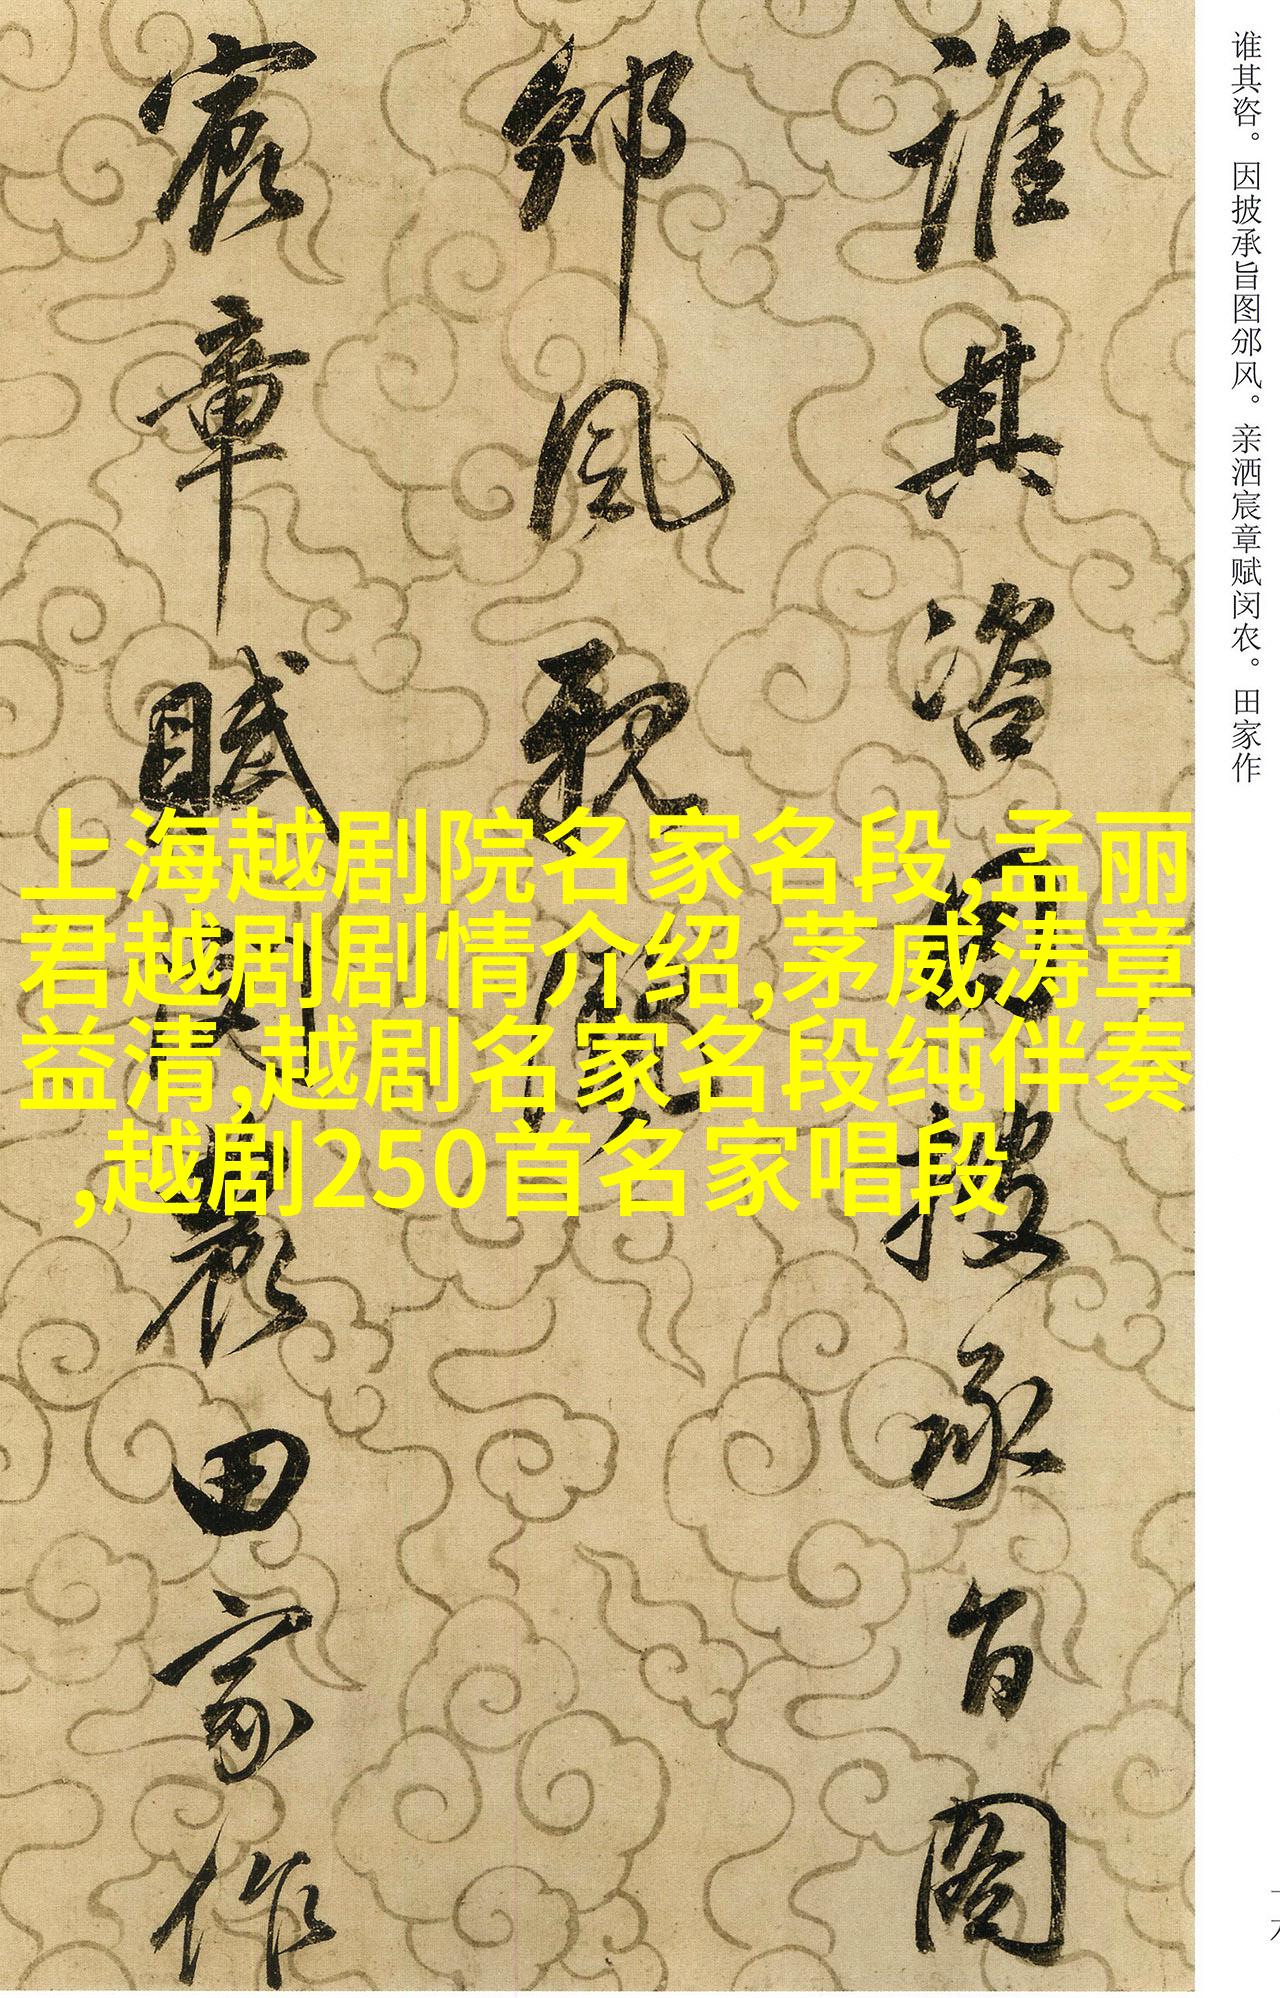 谁其咨。因披承旨图邠风。亲洒宸章赋闵农。田家作
誰其咨因披承旨圖
邠風親灑
宸章賦閔農田家作
上海越剧院名家名段,孟丽
君越剧剧情介绍,茅威涛章
益清,越剧名家名段纯伴奏
,越剧250首名家唱段